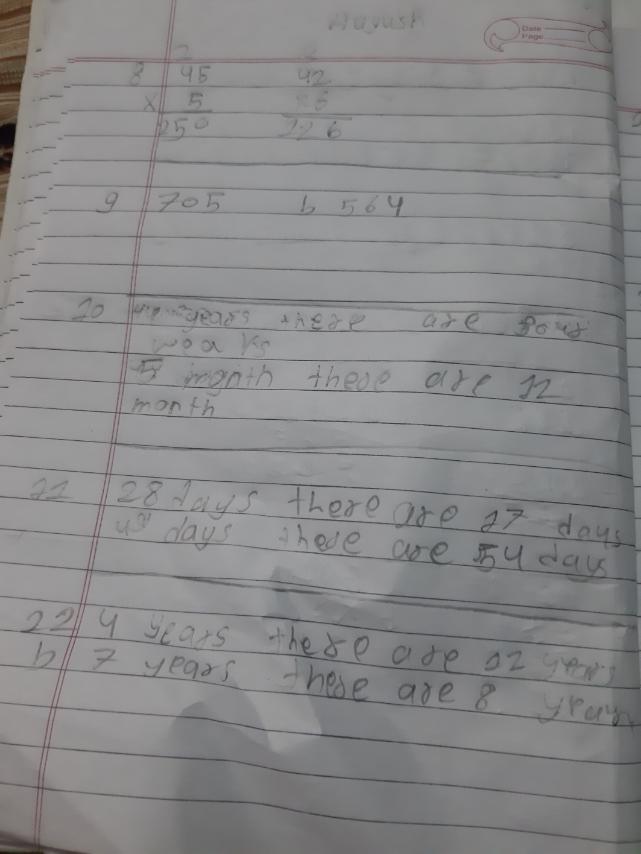 Aayush
Date
Page
2 2
8 45 42
x 5 x 6
250 226
9 705 b 564
10 years there are four
weaks
5 month there are 12
month
11 28 days there are 17 days
49 days there are 54 days
12 4 years there are 12 years
b 7 years there are 8 years